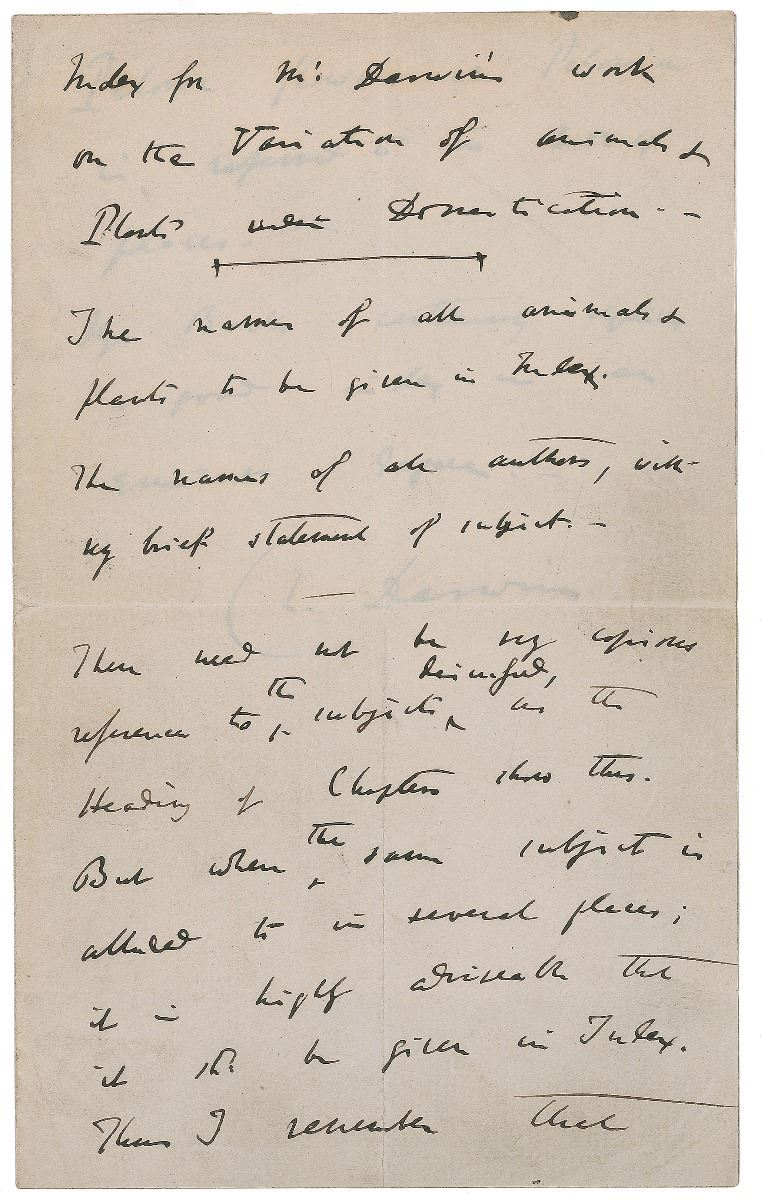 Index for Mr. Darwin's work
on the Variation of animals &
Plants under Domestication--
The names of all animals &
plants to be given in Index.
The names of all authors, with
vy brief statement of subject.-
There need not be vy copious
reference to the subjects discussed, as the
Heading of Chapters show this.
But when the same subject is
alluded to in several places;
it is highly advisable that
it shd. be given in Index.
Thus I remember that